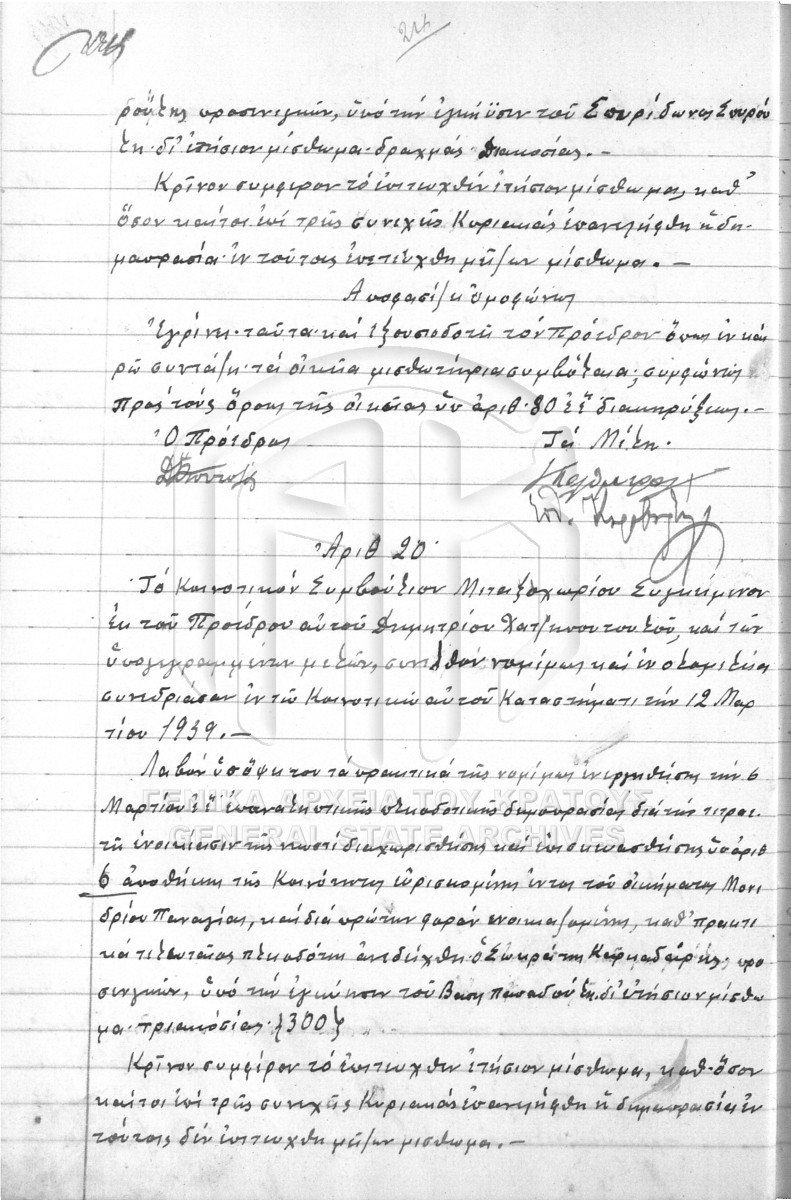 24
ρούλης προσενεγκών, ὑπό την ἐγγύησιν τοῦ Σπυρίδωνος Σπυρού
λη δι' ἐτήσιον μίσθωμα δραχμάς Διακοσίας. –
Κρῖνον συμφερον τό ἐπιτευχθέν ἐτήσιον μίσθωμα, καθ'
ὅσον καίτοι ἐπί τρεῖς συνεχεῖς Κυριακάς ἐπανελήφθη ἡ δη-
μοπρασία ἐν τούτοις ἐπετεύχθη μεῖζων μίσθωμα. –
Αποφασίζει ὁμοφώνως
Ἐγκρίνει ταῦτα καί ἐξουσιοδοτεῖ τόν Πρόεδρον ὅπως ἐν και
ρῶ συντάξει τά οἰκεῖα μισθωτήρια συμβόλαια, συμφώνως
πρός τούς ὅρους τῆς οἰκείας ὑπ' ἀριθ. 80 ἐ.ἔ. διακηρύξεως. –
Ὁ Πρόεδρος Τά Μέλη.
Ἀριθ 20
Τό Κοινοτικόν Συμβούλιον Μεταξοχωρίου Συγκείμενον
ἐκ τοῦ Προέδρου αὐτοῦ Δημητρίου Χατζηπουντουλοῦ, καί τῶν
ὑπογεγραμμένων μελῶν, συνελθόν νομίμως καί ἐν ὁλομελεία
συνεδριάσαν ἐν τῶ Κοινοτικῶ αὐτοῦ Καταστήματι τήν 12 Μαρ
τίου 1939. –
Λαβόν ὑπ' ὄψει του τά πρακτικά τῆς νομίμως ἐνεργηθείσης τήν 6
Μαρτίου ἐ.ἔ. ἐπαναληπτικῆς πλειοδοτικῆς δημοπρασίας διά τήν τετραε-
τῆ ἐνοικίασιν τῆς νεωστί διαχωρισθείσης καί ἐπισκευασθείσης ὑπ' ἀριθ
6 ἀποθήκης τῆς Κοινότητος εὑρισκομένης ἐντός τοῦ οἰκήματος Μονι
δρίου Παναγίας, καί διά πρώτην φοράν ενοικιαζομένης, καθ' πρακτι
κά τελευταῖος πλειοδότης ἀνεδείχθη ὁ Σωκράτης προ
σενεγκών, ὑπό τήν ἐγγύησιν τοῦ Βασ. Παπαδούλη, δι' ἐτήσιον μίσθω
μα τριακόσιας {300}
Κρῖνον συμφέρον τό ἐπιτευχθέν ἐτήσιον μίσθωμα, καθ' ὅσον
καίτοι ἐπί τρεῖς συνεχεῖς Κυριακάς ἐπανελήφθη ἡ δημοπρασία ἐν
τούτοις δέν ἐπιτευχθη μεῖζων μισθωμα. –
ΓΕΝΙΚΑ ΑΡΧΕΙΑ ΤΟΥ ΚΡΑΤΟΥΣ
GENERAL STATE ARCHIVES